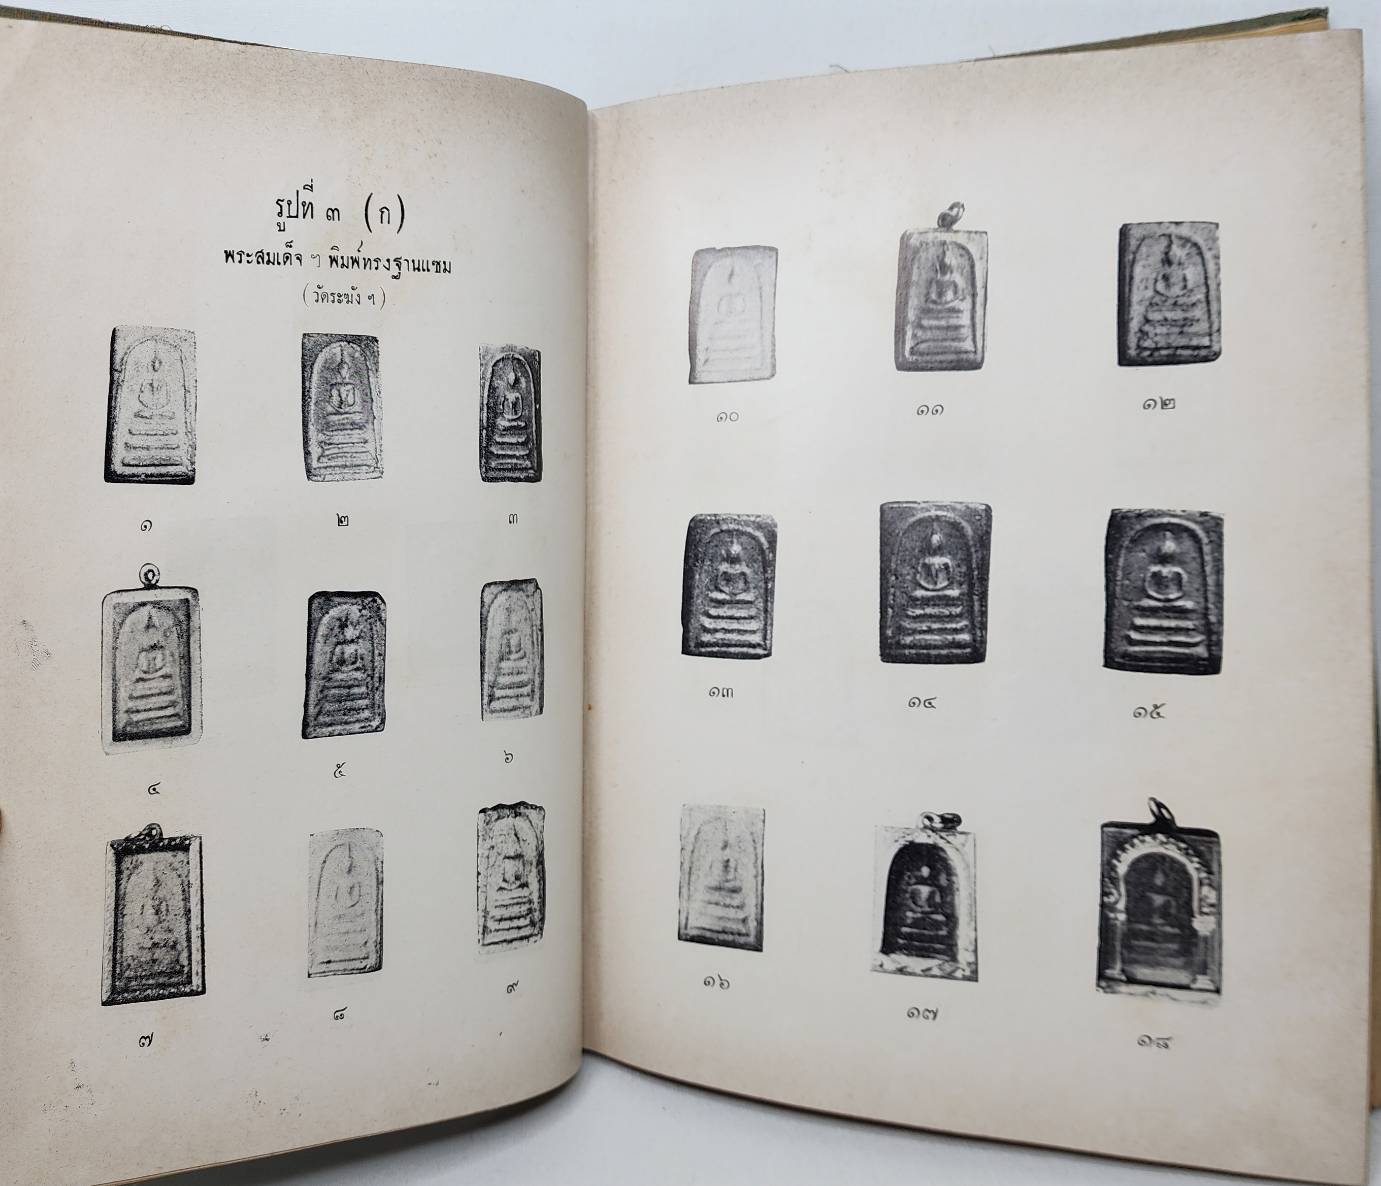 รูปที่ ๓ (ก)
พระสมเด็จ ฯ พิมพ์ทรงฐานแซม
(วัดระฆัง ฯ)
๑ ๒ ๓
๔ ๕ ๖
๗ ๘ ๙
๑๐ ๑๑ ๑๒
๑๓ ๑๔ ๑๕
๑๖ ๑๗ ๑๘